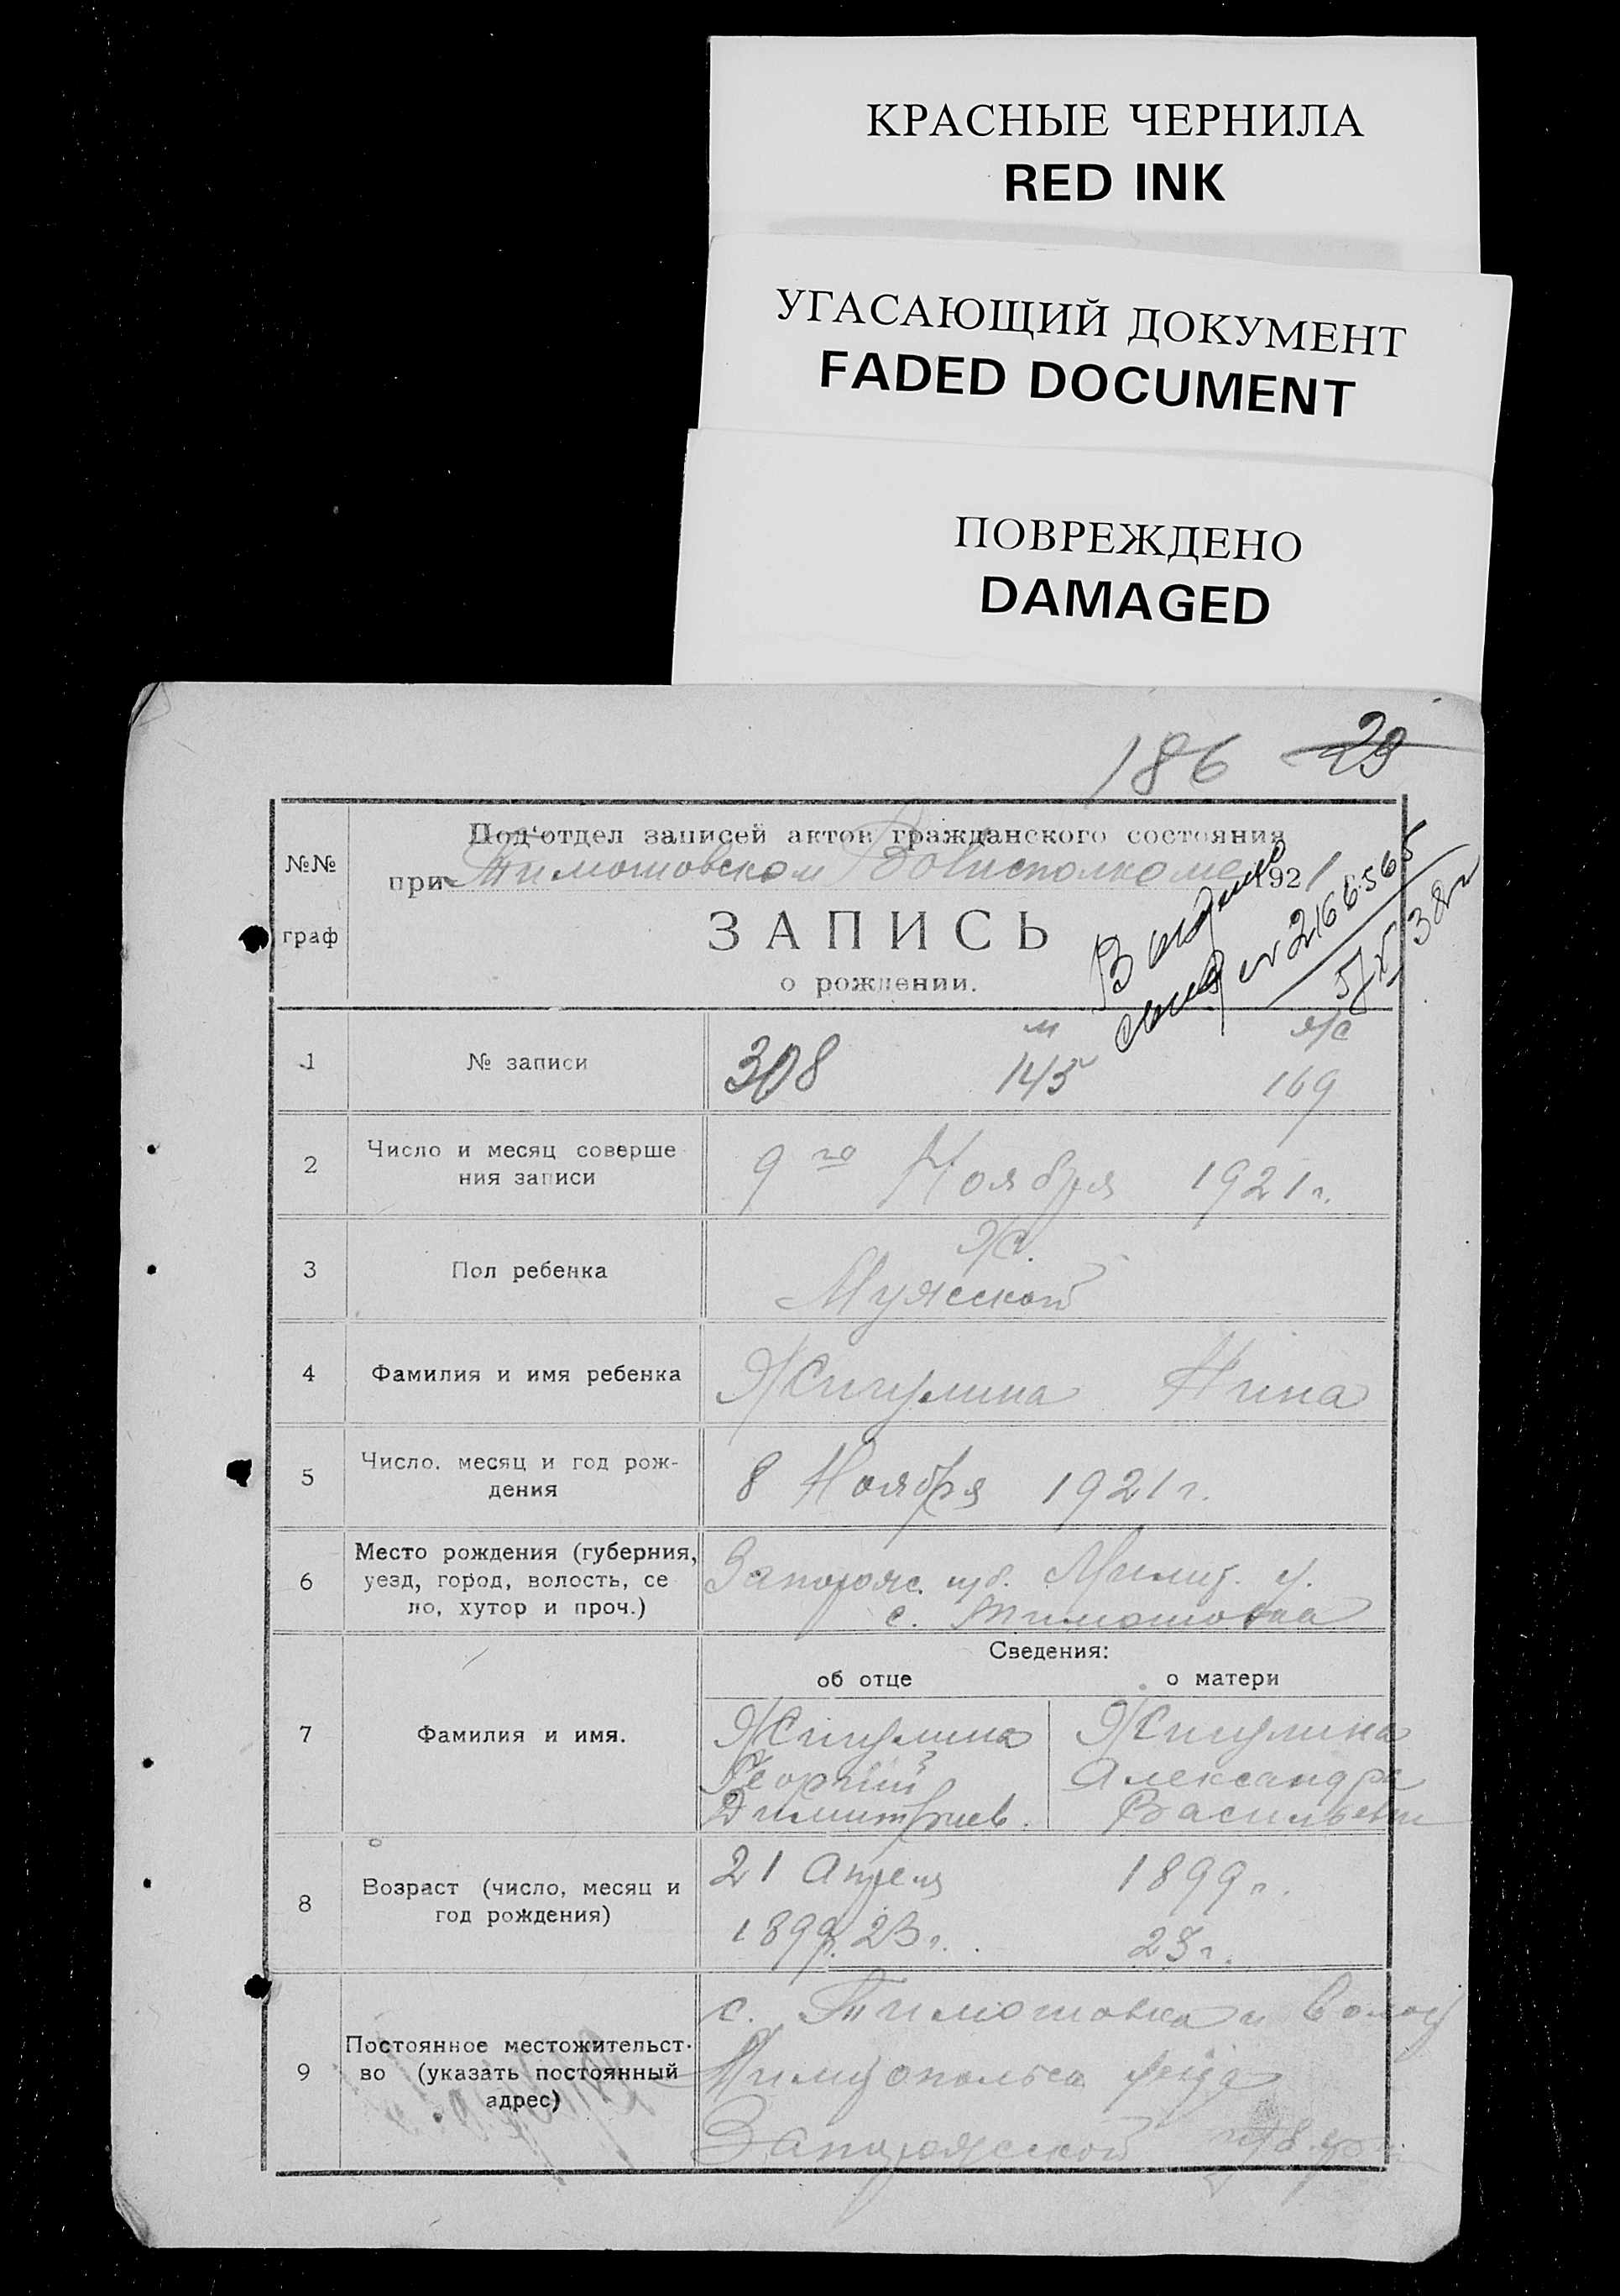 КРАСНЫЕ ЧЕРНИЛА
RED INK
УГАСАЮЩИЙ ДОКУМЕНТ
FADED DOCUMENT
ПОВРЕЖДЕНО
DAMAGED
186 29
№№ граф
Под'отдел записей актов гражданского состояния
при Тимошовском Волисполкоме 1921
ЗАПИСЬ
о рождении.
В 216656
38г
1 № записи 308 м 143 ж 169
2 Число и месяц соверше
ния записи 9го Ноября 1921г.
3 Пол ребенка Ж.
Мужской
4 Фамилия и имя ребенка Жигулина Нина
5 Число. месяц и год рож-
дения 8 Ноября 1921г.
6 Место рождения (губерния,
уезд, город, волость, се
ло, хутор и проч.)
Запорож. губ. Мелит. у.
с. Тимошовка
Сведения:
об отце о матери
7 Фамилия и имя.
Жигулина Жигулина
Георгий Александра
Димитриев. Васильевн
8 Возраст (число, месяц и
год рождения)
21 Апреля 1899г.
1899. 23г. 23г.
9 Постоянное местожительст-
во (указать постоянный
адрес)
с. Тимошовка
Запорожской